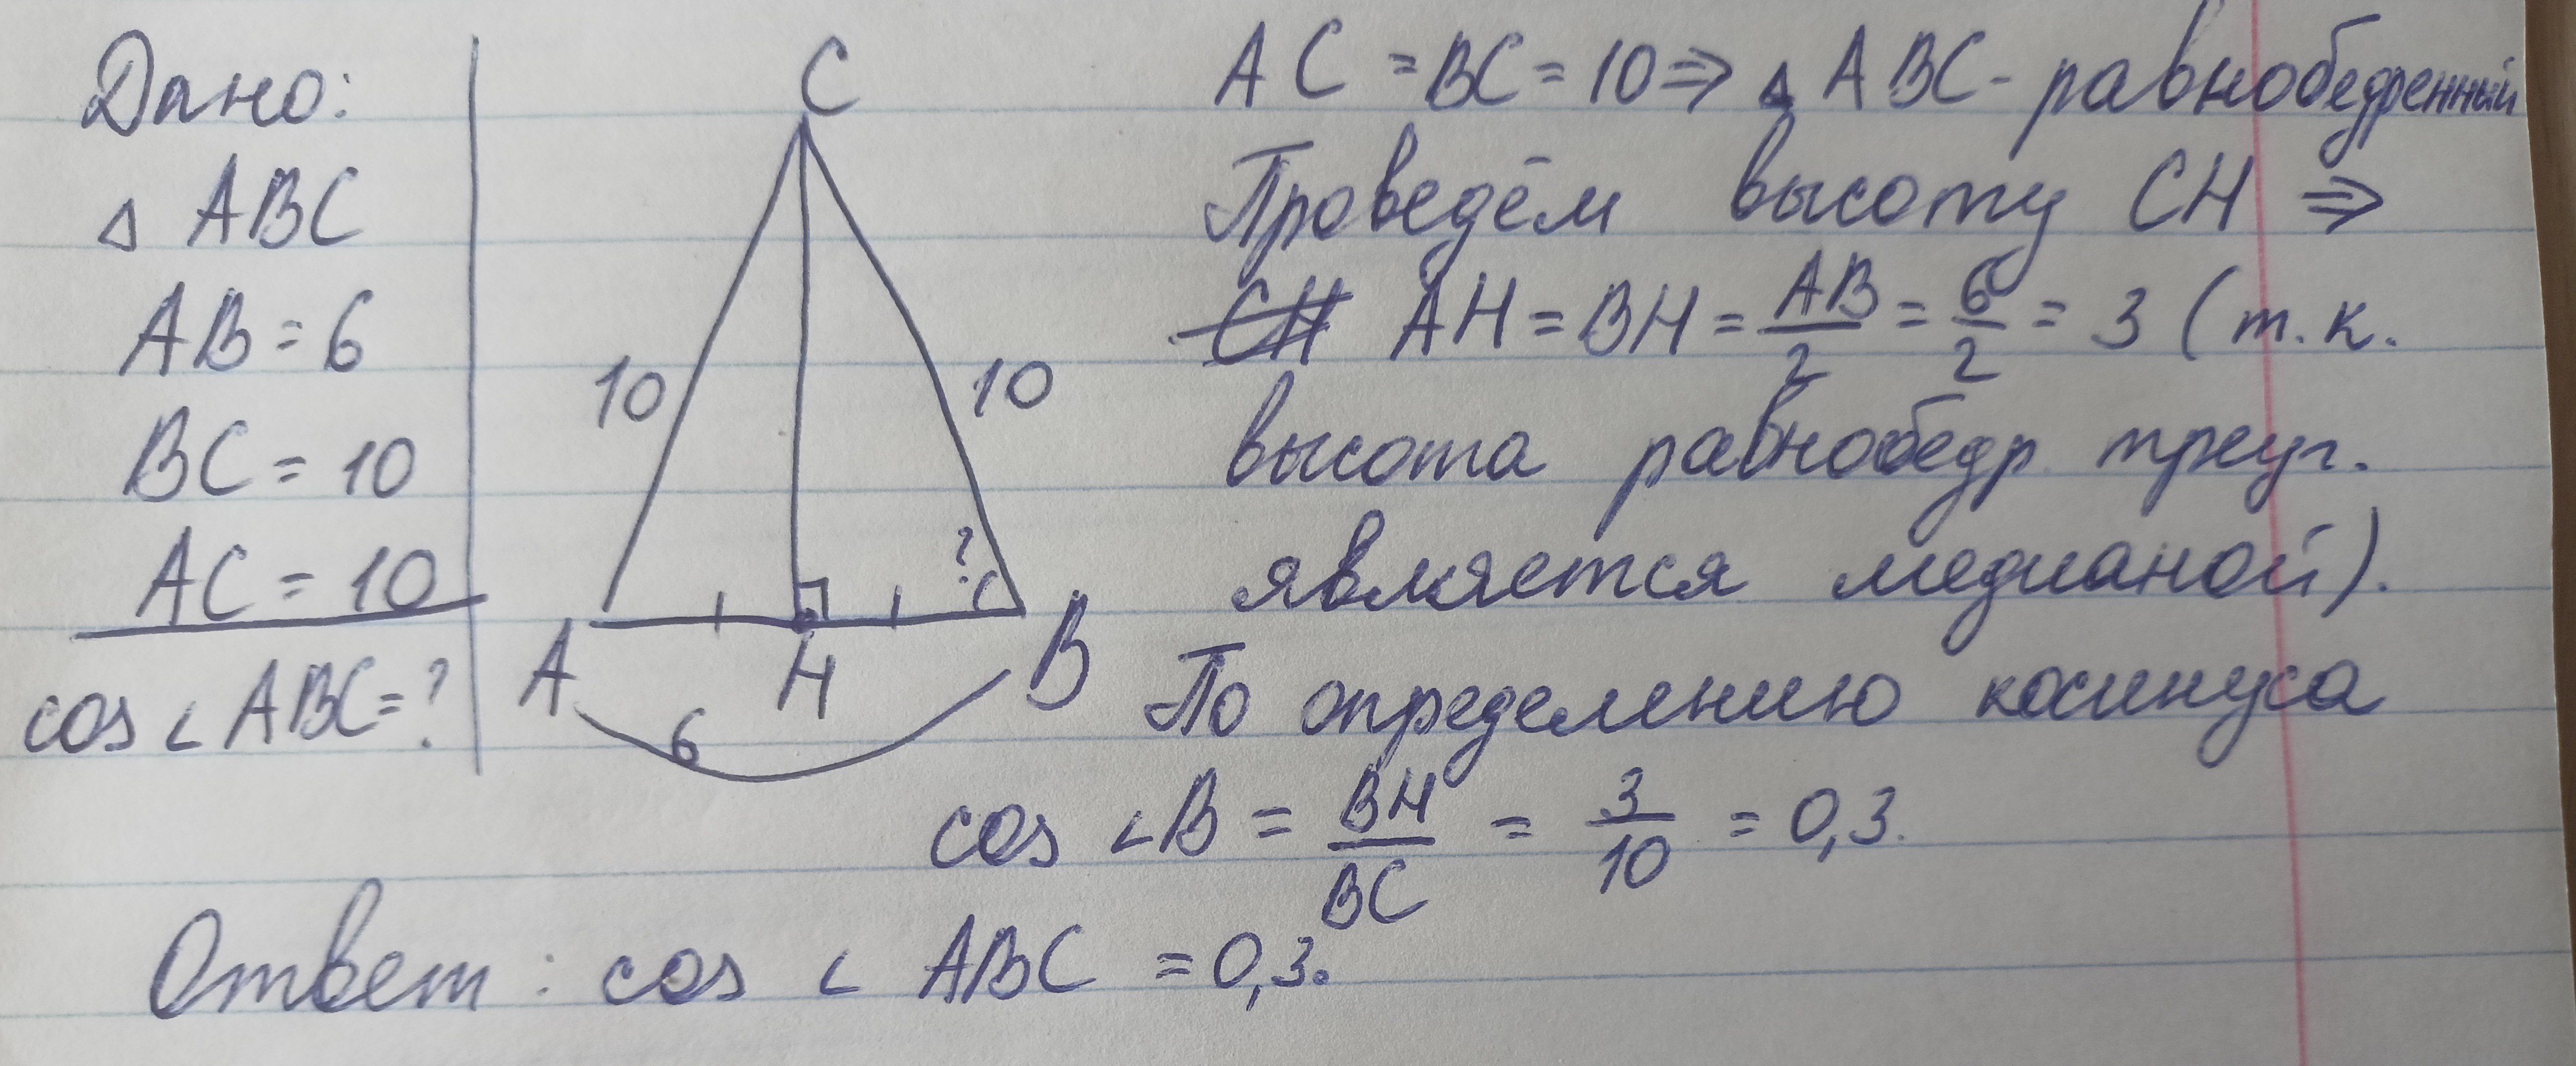 Дано:
△ ABC
AB = 6
BC = 10
AC = 10
cos ∠ ABC = ?
C
10
10
?
A
H
B
6
AC = BC = 10 ⇒ △ ABC - равнобедренный
Проведём высоту CH ⇒
CH AH = BH = AB/2 = 6/2 = 3 (т.к.
высота равнобедр треуг.
является медианой).
По определению косинуса
cos ∠B = BH/BC = 3/10 = 0,3.
Ответ: cos ∠ ABC = 0,3.